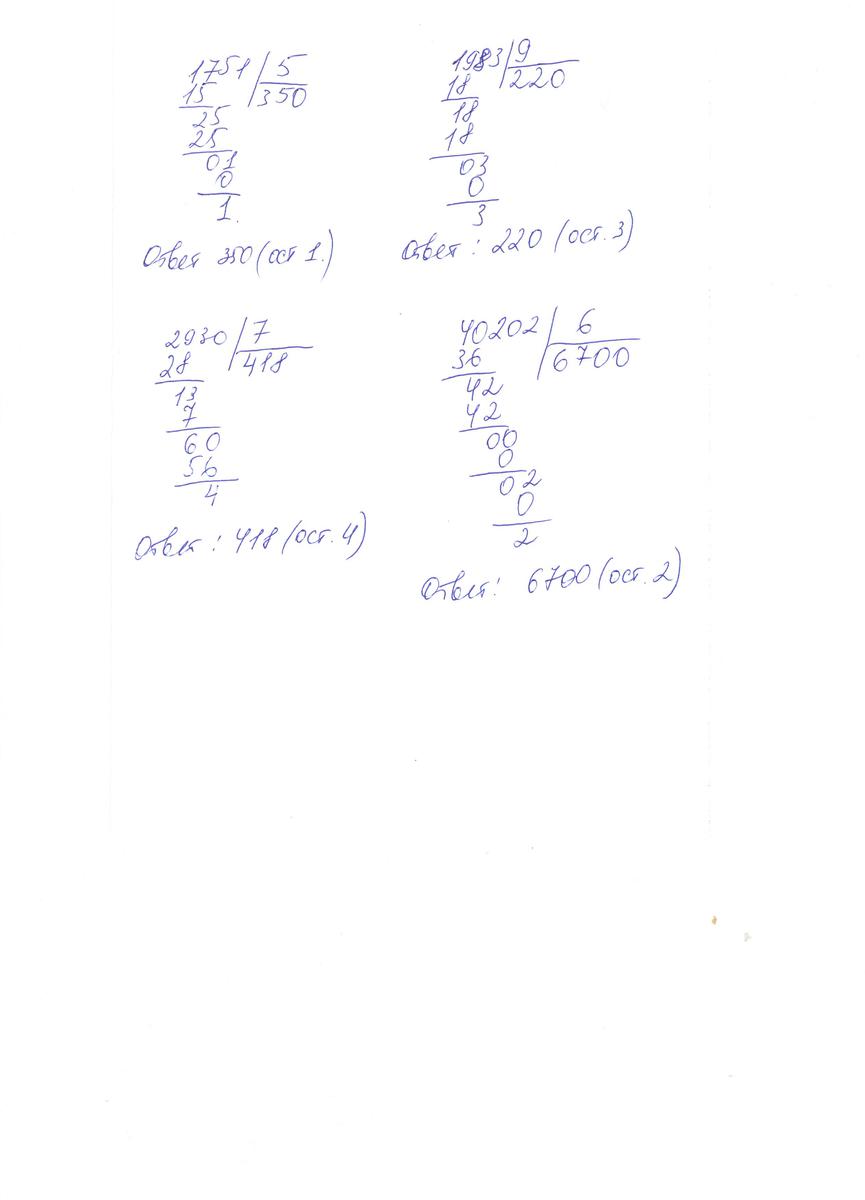 1751 5
15 350
25
25
01
0
1.
Ответ 350 (ост 1.)
1983 9
18 220
18
18
03
0
3
Ответ: 220 (ост. 3)
2930 7
28 418
13
7
60
56
4
Ответ: 418 (ост. 4)
40202 6
36 6700
42
42
00
0
02
0
2
Ответ: 6700 (ост. 2)